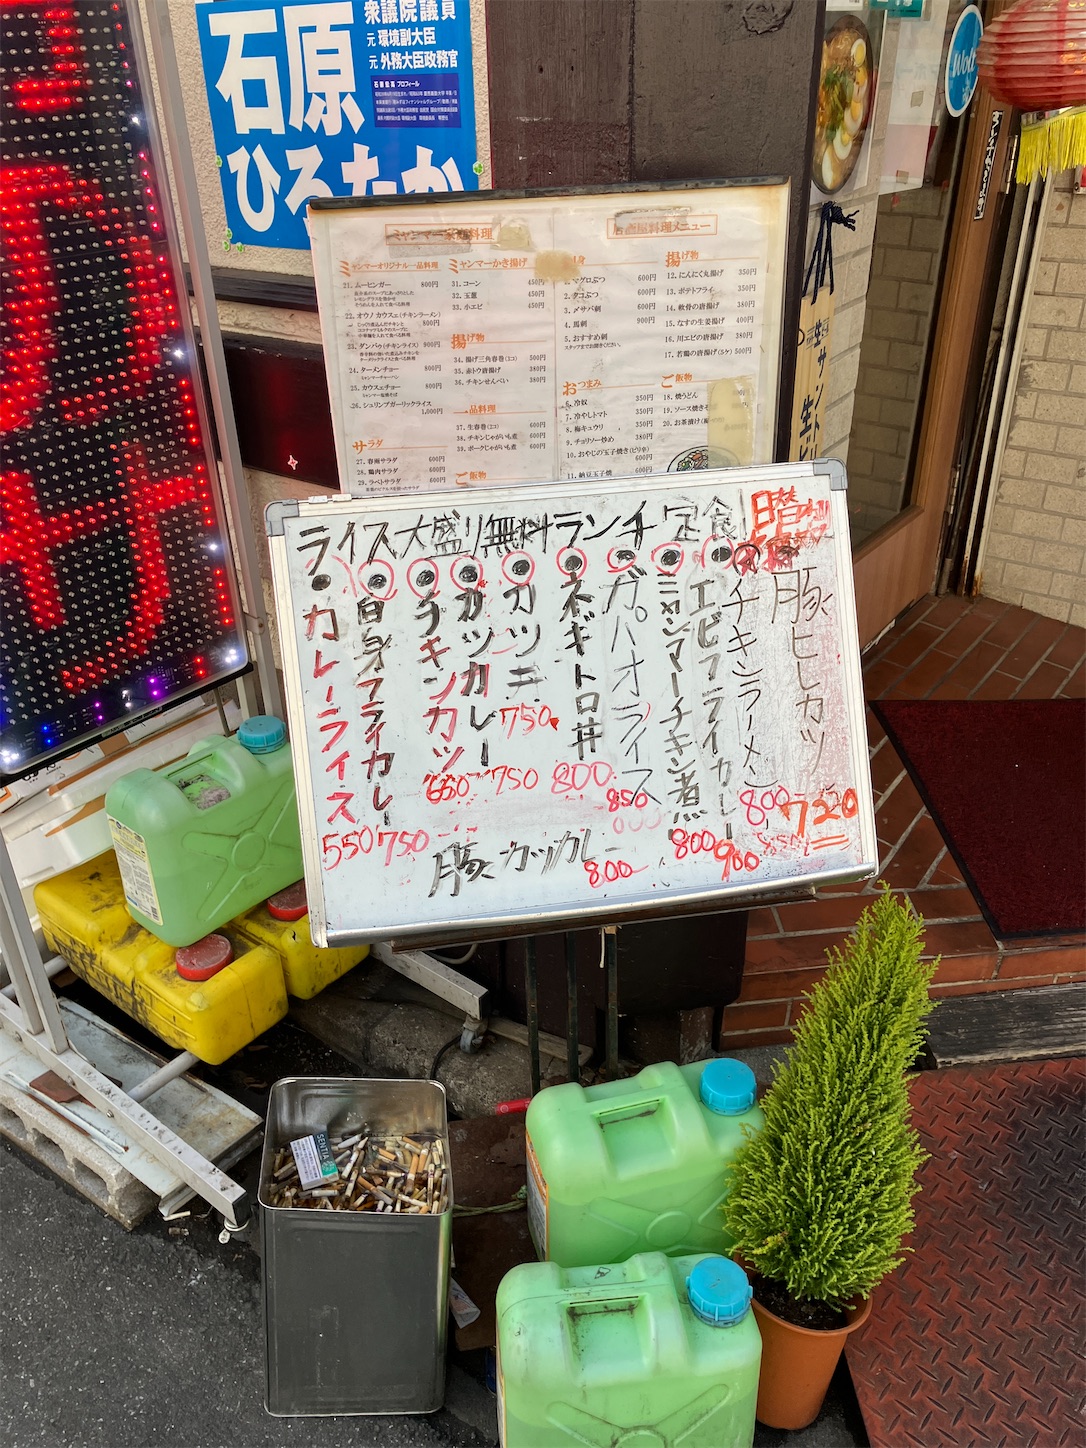 石原
ひろたか
衆議院議員
元 環境副大臣
元 外務大臣政務官
石原宏高 プロフィール
居酒屋料理メニュー
ミャンマーオリジナル一品料理
21. ムーヒンガー 800円
22. オウノカウスェ(チキンラーメン)
800円
23. ダンバウ(チキンライス) 900円
24. ターメンチョー 800円
25. カウスェチョー 800円
26. シュリンプガーリックライス
1,000円
サラダ
27. 春雨サラダ 600円
28. 鶏肉サラダ 600円
29. ラペトサラダ 600円
ミャンマーかき揚げ
31. コーン 450円
32. 玉葱 450円
33. 小エビ 450円
揚げ物
34. 揚げ三角春巻(3コ) 500円
35. 赤トウ唐揚げ 380円
36. チキンせんべい 380円
一品料理
37. 生春巻(2コ) 600円
38. チキンじゃがいも煮 600円
39. ポークじゃがいも煮 600円
ご飯物
1. マグロぶつ 600円
2. タコぶつ 600円
3. 〆サバ刺 600円
4. 馬刺 900円
5. おすすめ刺
スタッフまでお聞きください。
おつまみ
6. 冷奴 350円
7. 冷やしトマト 350円
8. 梅キュウリ 350円
9. チョリソー炒め 380円
10. おやじの玉子焼き(ピリ辛)
600円
11. 納豆玉子焼 600円
揚げ物
12. にんにく丸揚げ 350円
13. ポテトフライ 350円
14. 軟骨の唐揚げ 380円
15. なすの生姜揚げ 400円
16. 川エビの唐揚げ 380円
17. 若鶏の唐揚げ(5ケ) 500円
ご飯物
18. 焼うどん
19. ソース焼き
20. お茶漬け
生サントリー生ビ
ライス大盛リ無料ランチ定食
日替り
カレーライス
550
白身フライカレー
750
チキンカツ
650
カツカレー
750
カツ
750
ネギトロ丼
800
ガパオライス
850
ミャンマーチキン煮
800
エビフライカレー
900
チキンラーメン
800
豚ヒレカツ
720
豚カツカレー
800
SENTIA